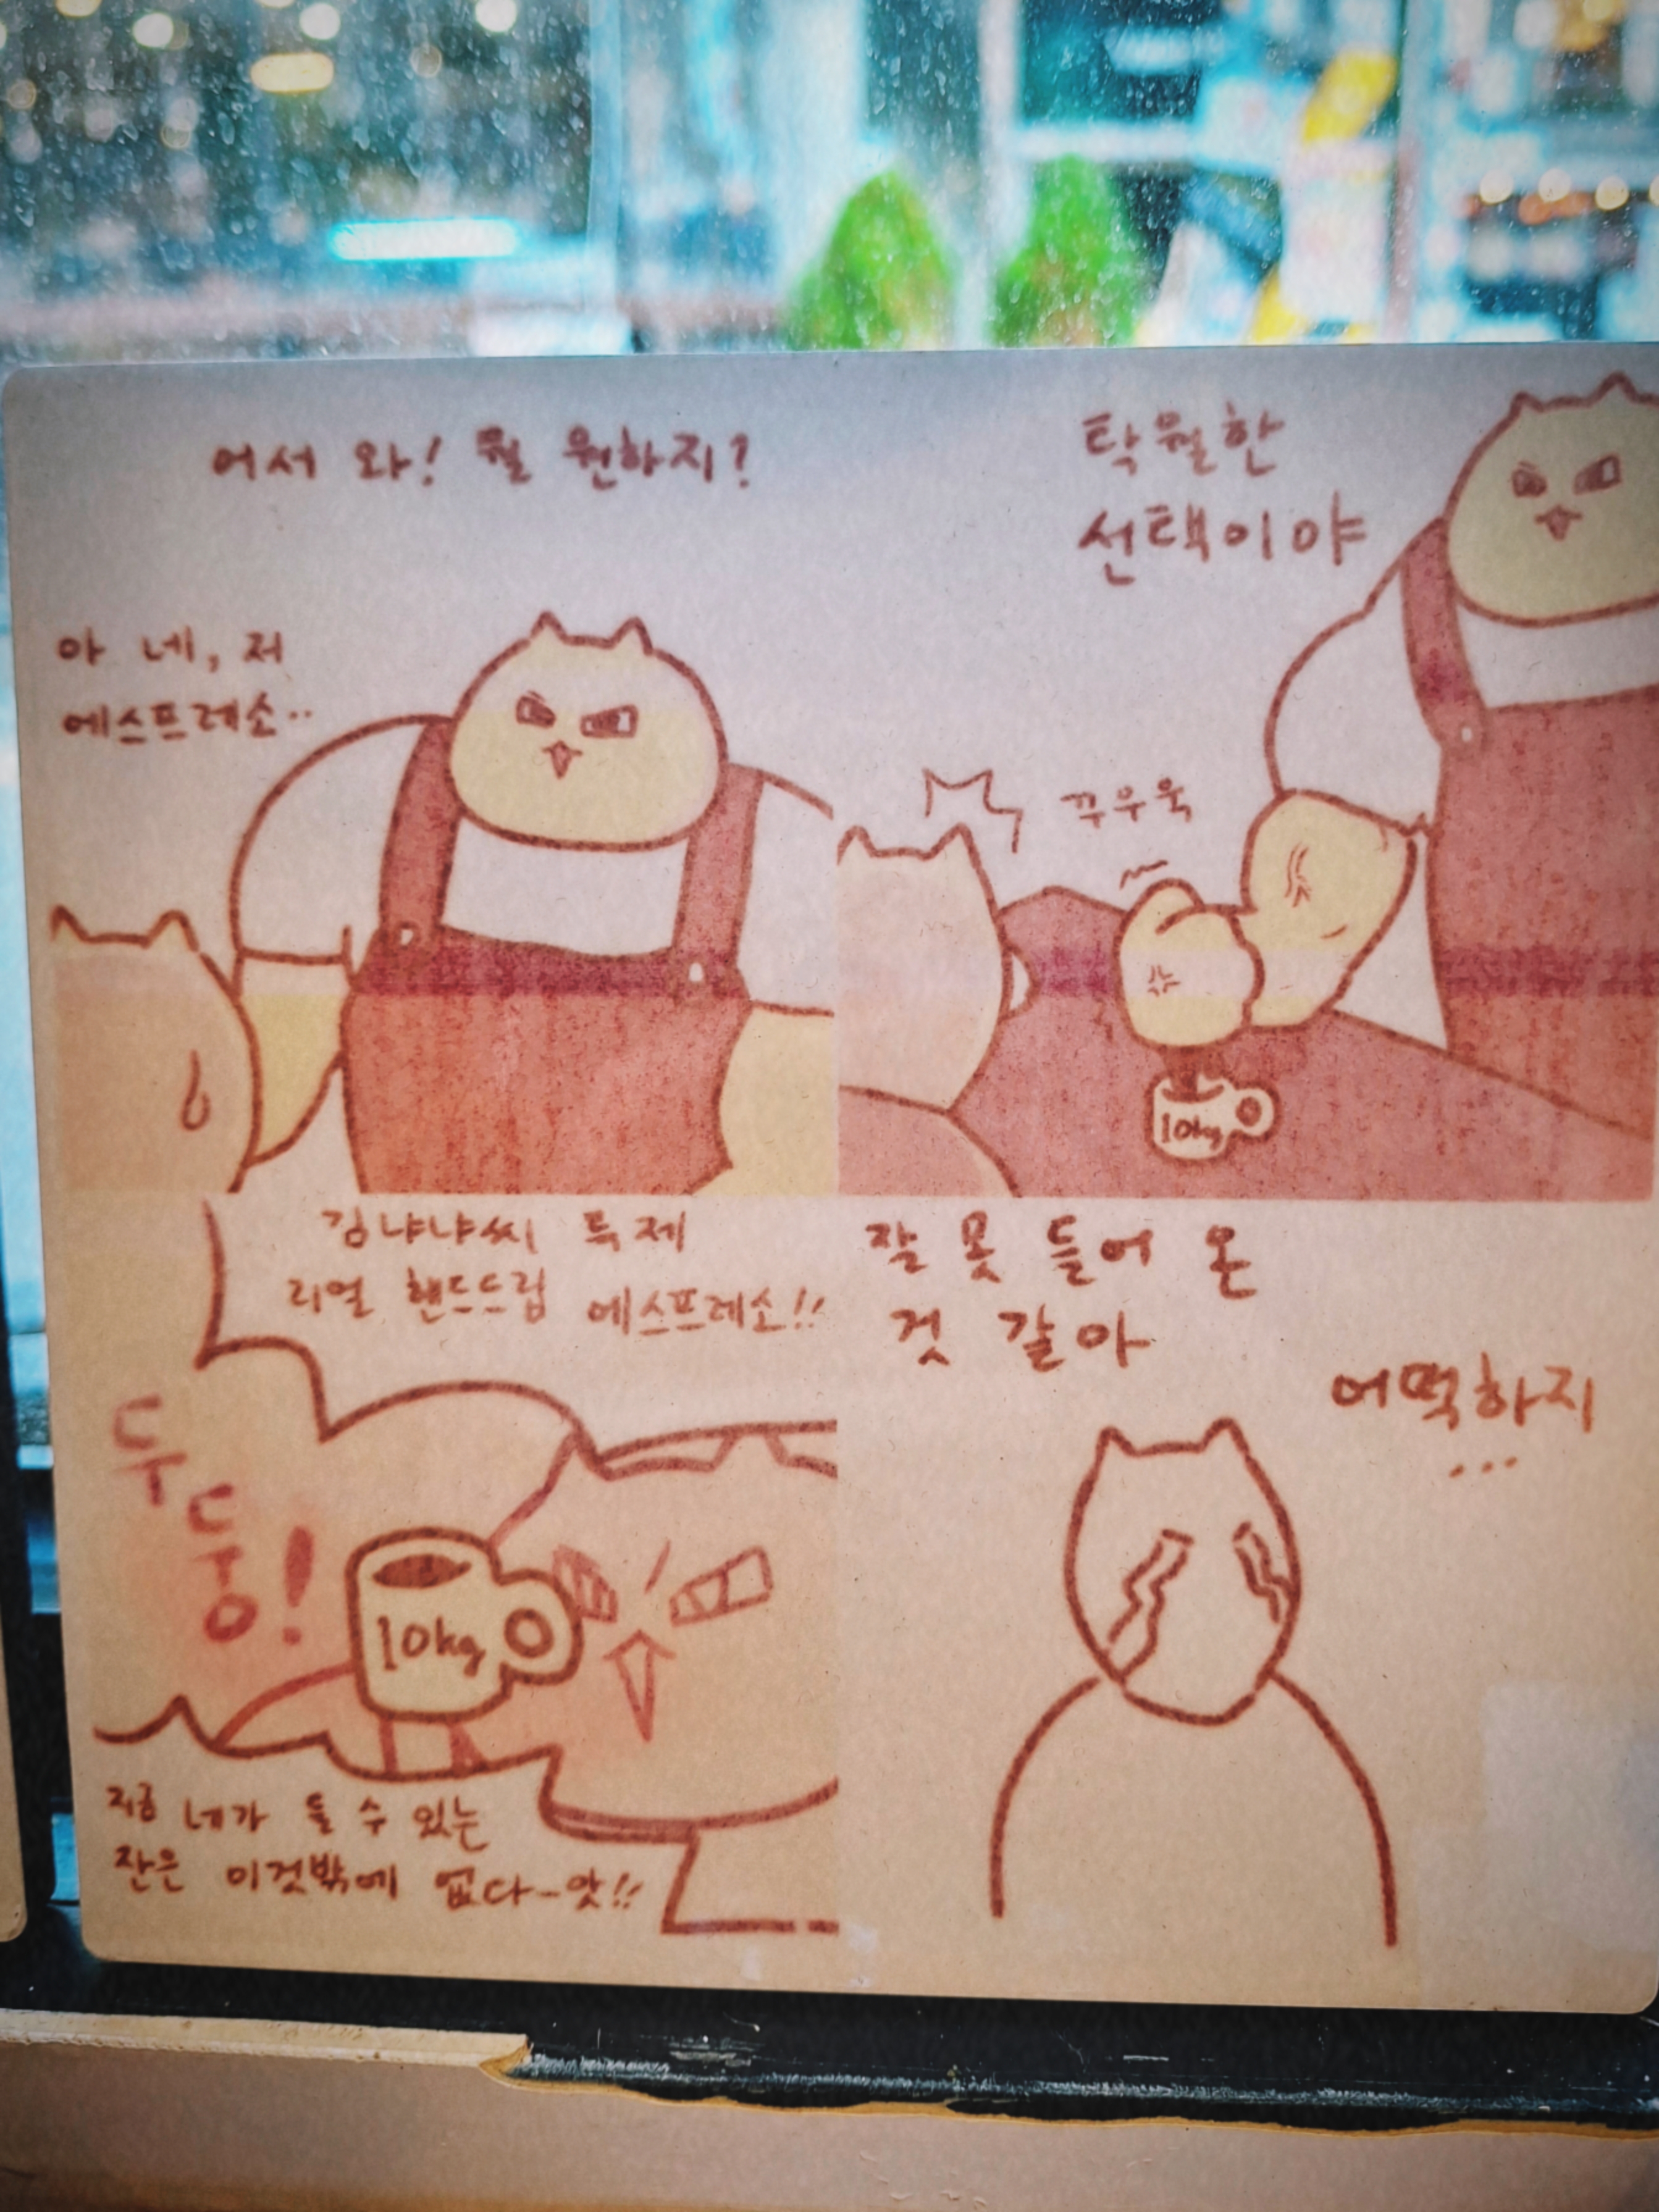 어서 와! 뭘 원하지?
아 네, 저
에스프레소..
탁월한
선택이야
꾸우욱
10kg
김냐냐씨 특제
리얼 핸드드립 에스프레소!!
두
둥!
10kg
지금 네가 들 수 있는
잔은 이것밖에 없다-앗!!
잘 못 들어 온
것 같아
어떡하지
...